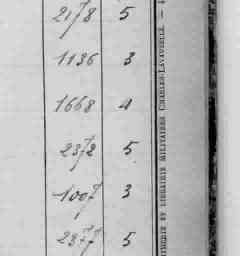 2178 5
1136 3
1668 4
2372 5
1007 3
2377 5
IMPRIMERIE ET LIBRAIRIE MILITAIRES CHARLES-LAVAUZELLE. —